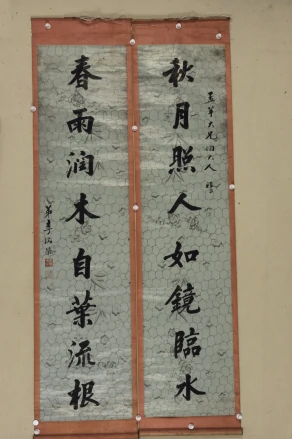 秋月照人如鏡臨水
春雨润木自葉流根